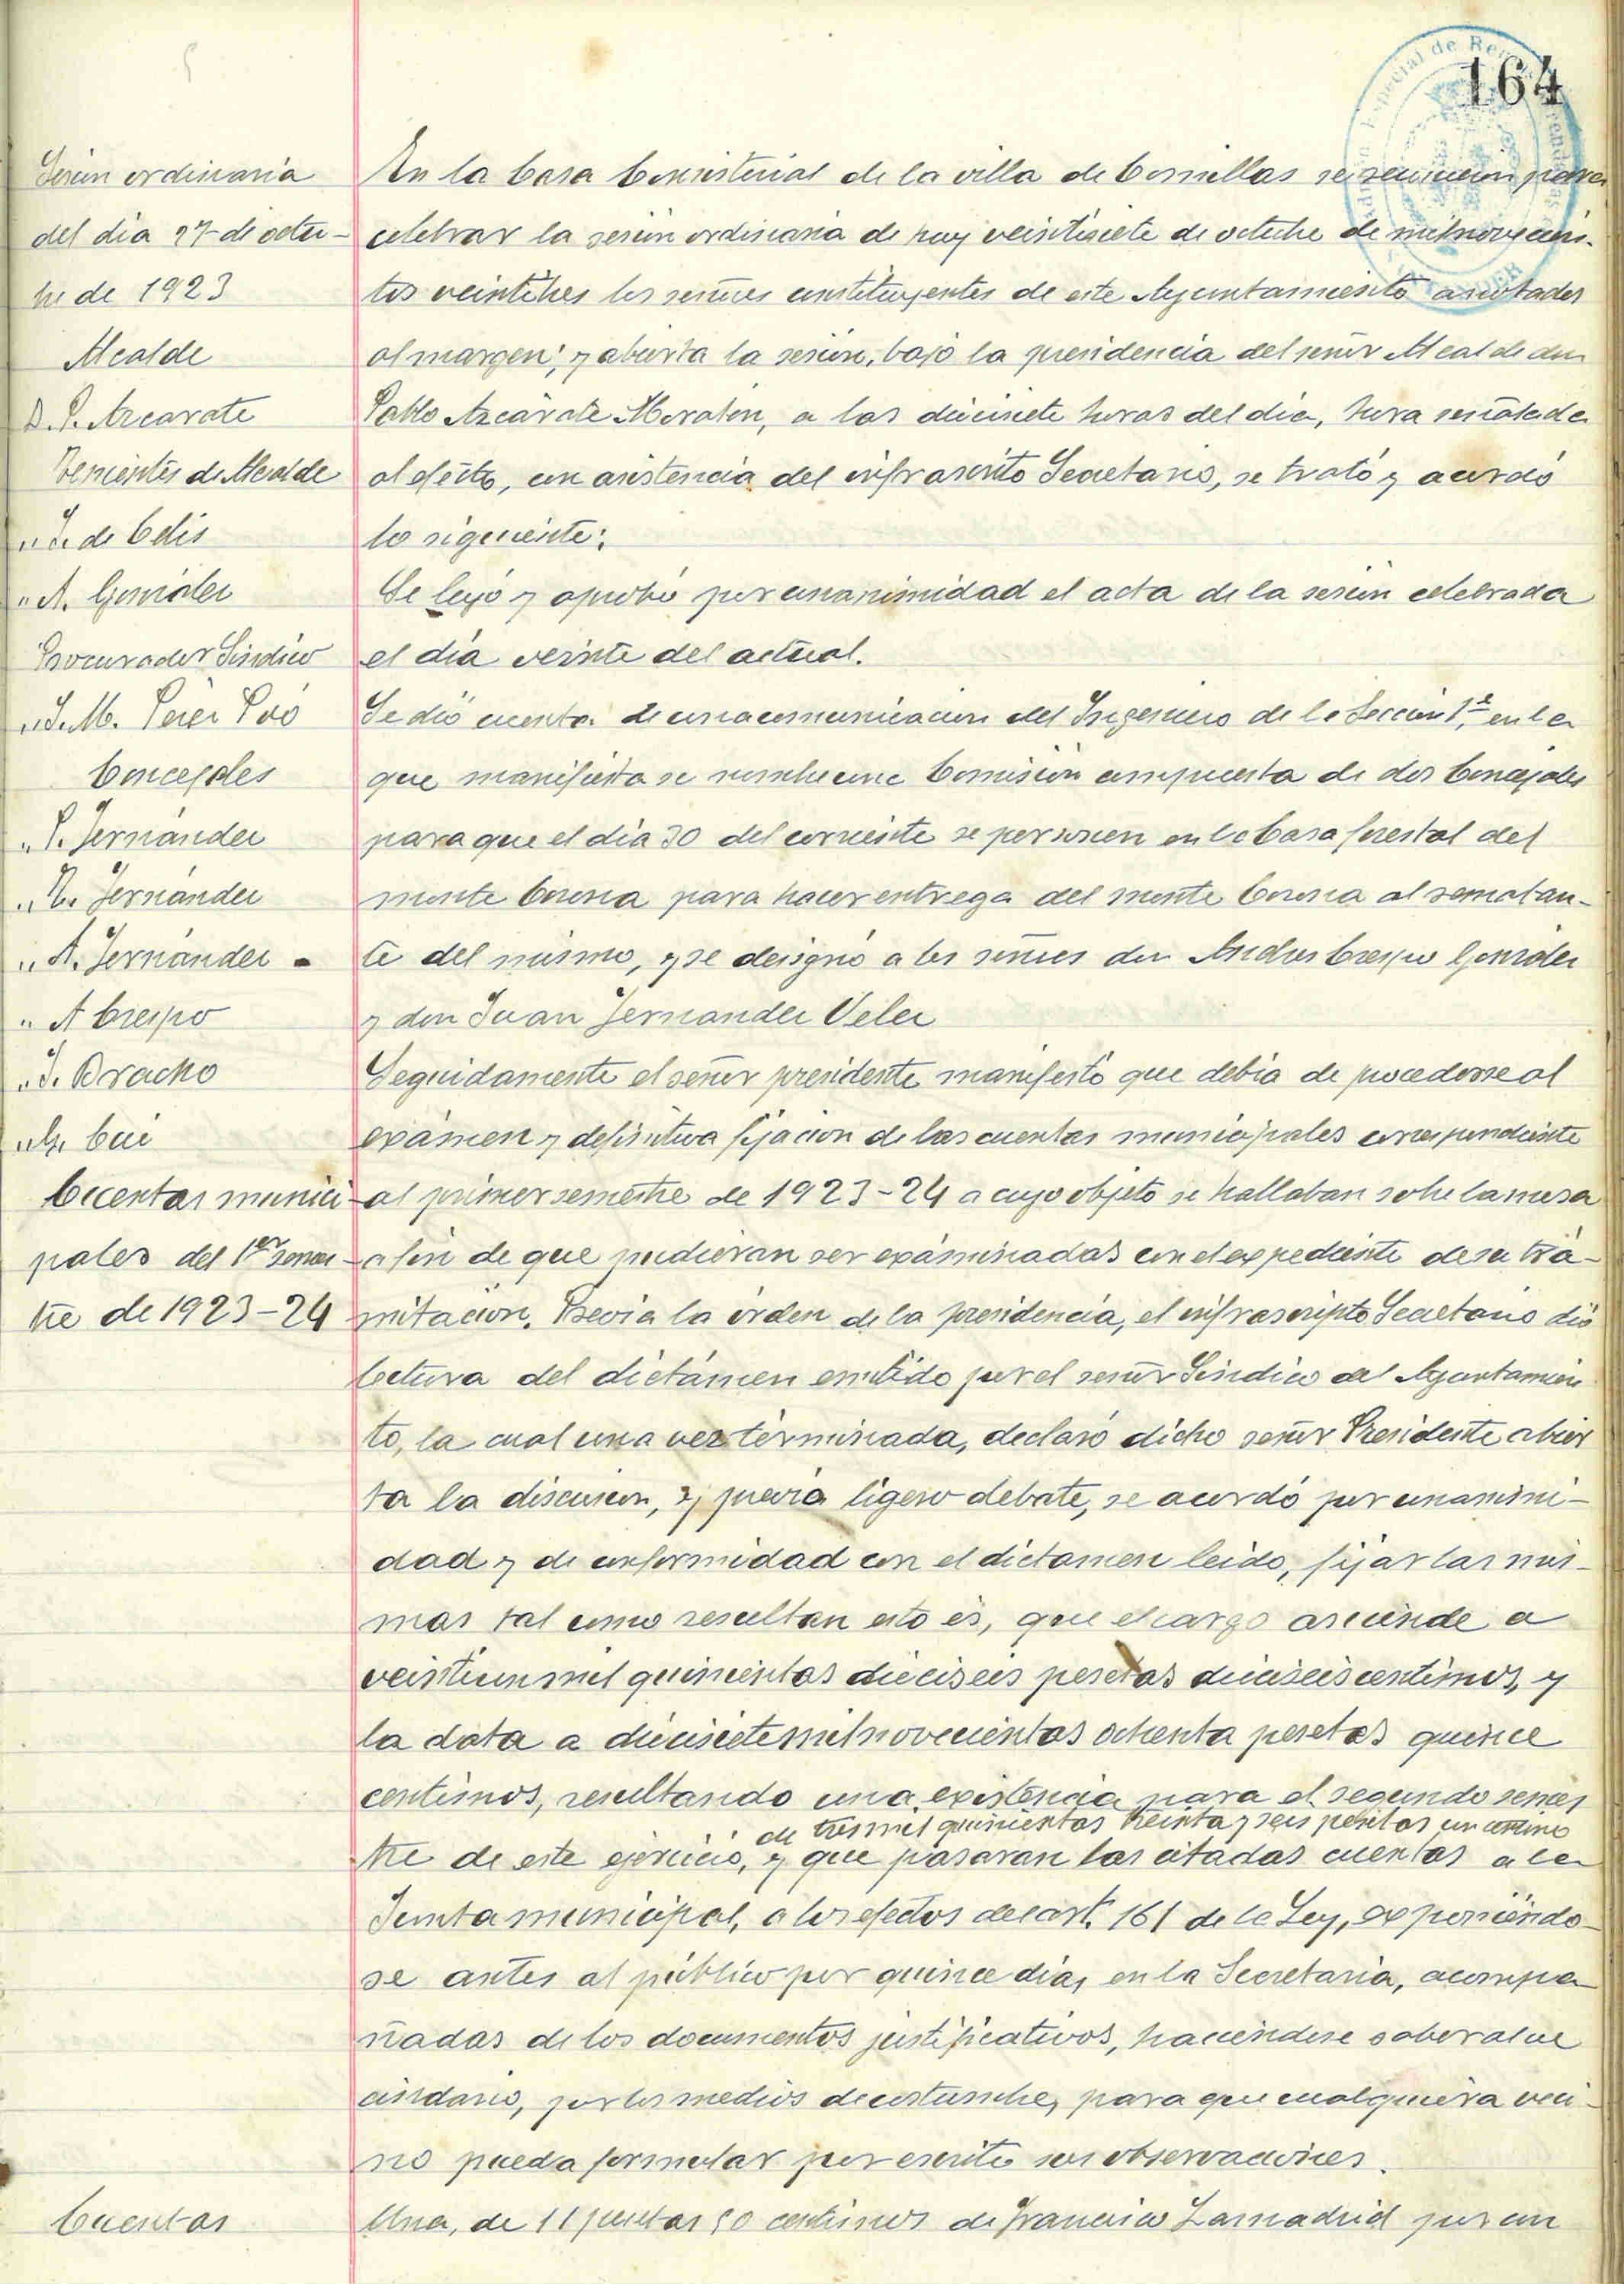 164
Sesión ordinaria
del dia 27 de octu-
bre de 1923
Alcalde
D. P. Azcarate
Tenientes de Alcalde
" de Celis
" A. González
Procurador Síndico
" J. M. Pérez Poó
Concejales
" P. Fernández
" Fernández
" A. Fernández
" A Crespo
" J. Bracho
" Cué
Cuentas munici
pales del 1er semes-
tre de 1923-24
Cuentas
En la Casa Consistorial de la villa de Comillas se reunieron para
celebrar la sesión ordinaria de hoy veintisiete de octubre de mil novecien-
tos veintitres los señores constituyentes de este Ayuntamiento anotados
al margen; y abierta la sesión, bajo la presidencia del señor Alcalde don
Pablo Azcárate Moratón, a las diecisiete horas del día, hora señalada
al efecto, con asistencia del infrascrito Secretario, se trató y acordó
lo siguiente:
Se leyó y aprobó por unanimidad el acta de la sesión celebrada
el día veinte del actual.
Se dió cuenta de una comunicación del Ingeniero de la Sección 1ª, en la
que manifiesta se nombre una Comisión compuesta de dos Concejales
para que el día 30 del corriente se personen en la Casa forestal del
monte Corona para hacer entrega del monte Corona al rematan-
te del mismo, y se designó a los señores don Andrés Crespo González
y don Juan Fernandez Velez
Seguidamente el señor presidente manifestó que debía de procederse al
exámen y definitiva fijacion de las cuentas municipales correspondiente
al primer semestre de 1923-24 a cuyo objeto se hallaban sobre la mesa
a fin de que pudieran ser exáminadas con el expediente de su trá-
mitación. Previa la órden de la presidencia, el infrascripto Secretario dió
lectura del dictámen emitido por el señor Síndico del Ayuntamien
to, la cual una vez términada, declaró dicho señor Presidente abier
ta la discusion, y previa ligero debate, se acordó por unanimi-
dad y de conformidad con el dictamen leido, fijar las mis-
mas tal como resultan esto és, que el cargo asciende a
veintiun mil quinientas dieciseis pesetas dieciseis centimos, y
la data a diecisiete mil novecientas ochenta pesetas quince
centimos, resultando una existencia para el segundo semes
de tres mil quinientas treinta y seis pesetas un centimo
tre de este ejercicio, y que pasaran las citadas cuentas a la
Junta municipal, a los efectos del art. 161 de la Ley, exponiéndo-
se antes al público por quince días en la Secretaria, acompa
ñadas de los documentos justificativos, haciendose saber al ve
cindario, por los medios de costumbre, para que cualquiera veci-
no pueda formular por escrito sus observaciones.
Una, de 11 pesetas 50 centimos de Francisco Lamadrid por un